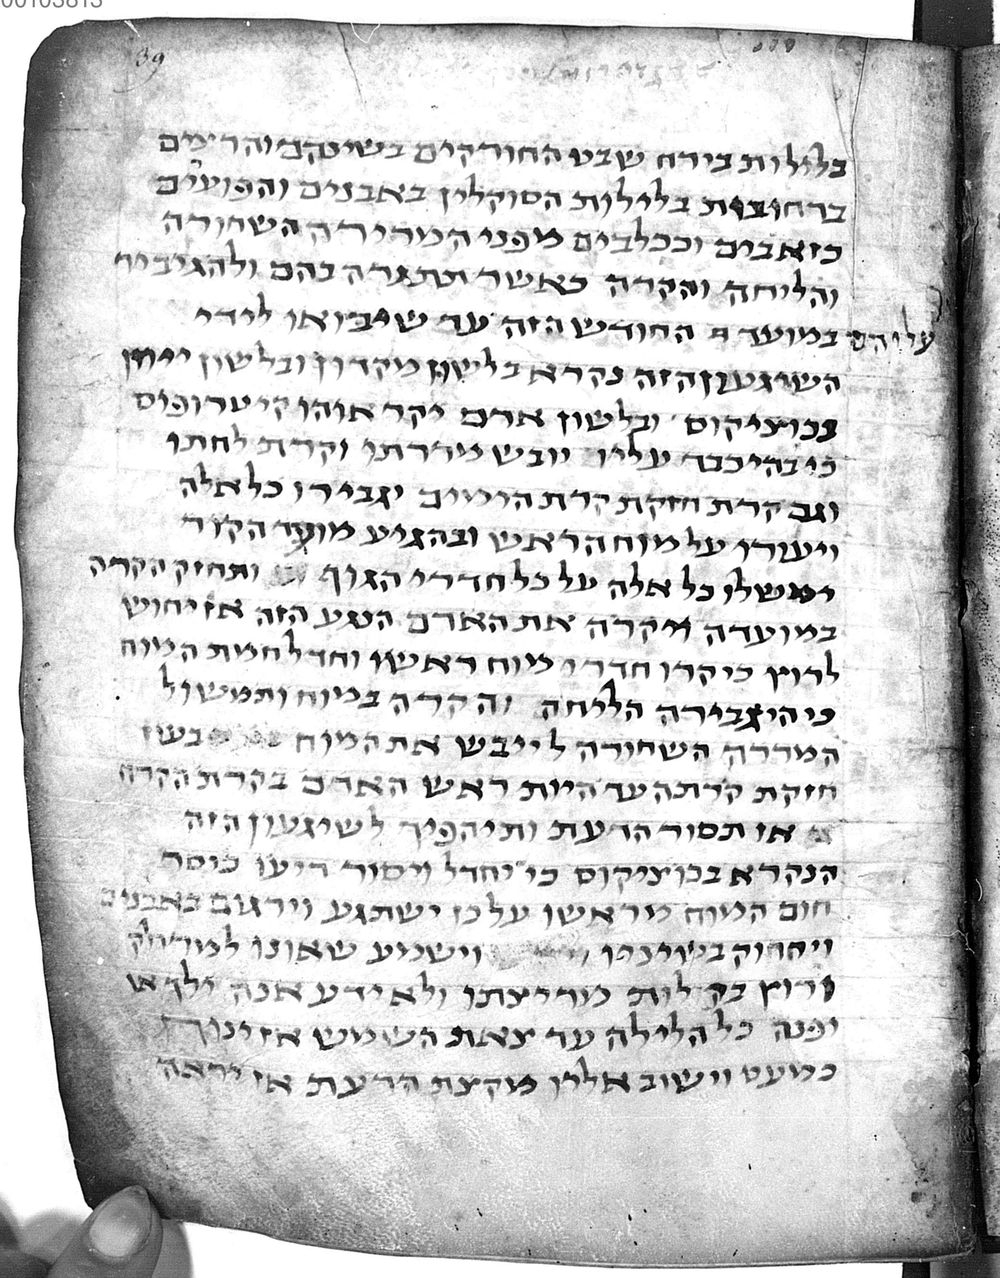 00103813
39
בלילות בירח שבט החורקים בשיניהם והרימים
ברחובות בלילות הסוקלין באבנים והפועים
כזאבים וככלבים מפני המרירה השחורה
והליחה והקרה כאשר תתגרה בהם ולהגיבית
עליהם במועד החודש הזה עד שיבואו לידי
השיגעון הזה נקרא בלשון מקדון ובלשון יוון
ובלשון ארם יקראוהו
כי בהיכבד עליו יובש מיררתו וקרת לחתו
וגם קרת חזקת קרת הימים יגבירו כל אלה
ויעודו על מוח הראש ובהגיע מועד הקור
ימשלו כל אלה על כל חדרי הגוף ותחזק הקרה
במועדה ויקרה את האדם הנגע הזה אז יחוש
לרוץ כי קרו חדרי מוח ראשו וחדל חמת המוח
כי היגבירה הליחה והקרה במוח ותמשול
המררה השחורה לייבש את המוח בעוז
חזקת קרתה עד היות ראש האדם בקרת הקרה
אז תסור הדעת ותיהפיך לשיגעון הזה
הנקרא כי יחדל ויסור דיעו כיסר
חום המוח מראשו על כן ישתגע וירגום באבנים
ויחרוק בשיניו וישמיע שאונו למרחוק
וירוץ בקלות מריצתו ולא ידע אנה ילך או
יפנה כל הלילה עד צאת השמש אז ינוח
כמעט וישוב אליו מקצת הדעת אז יראה